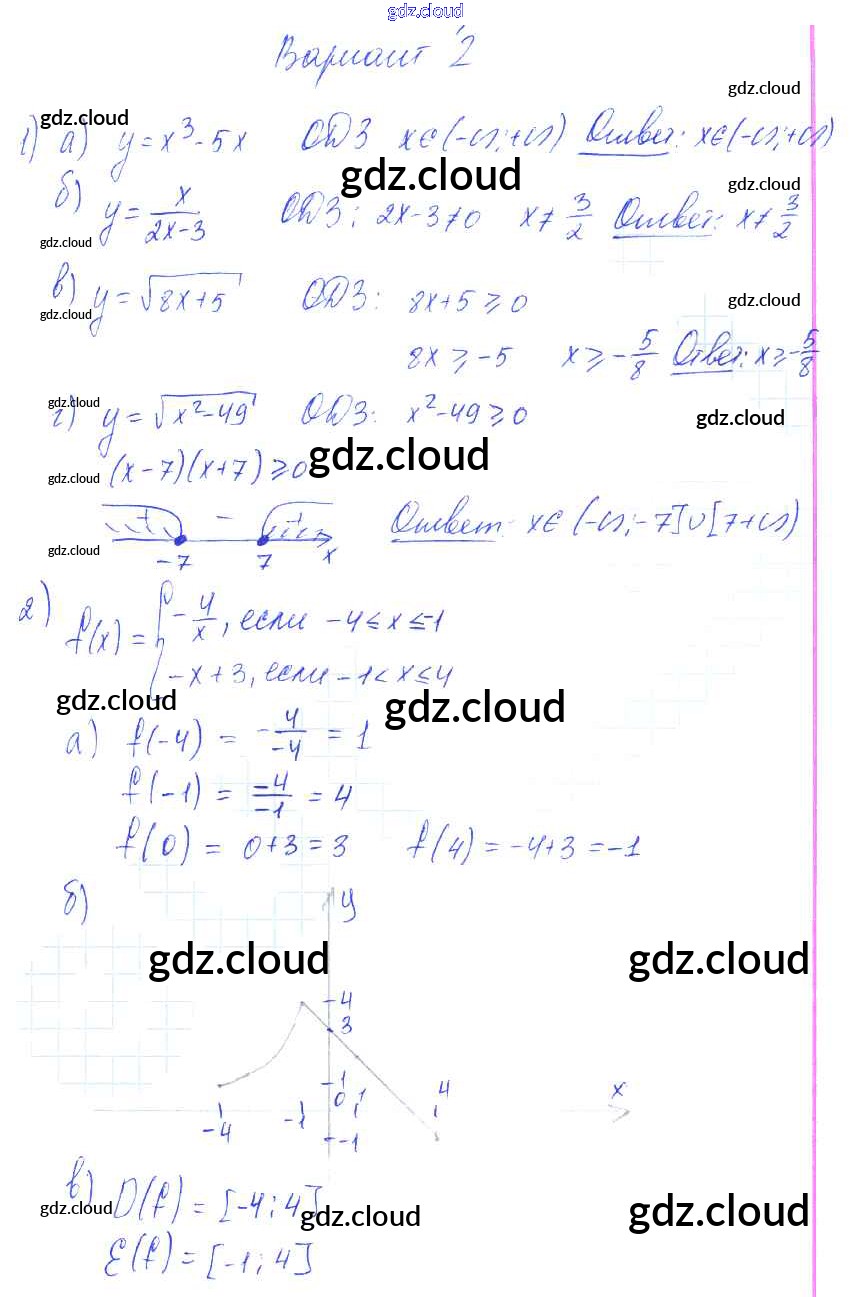 gdz.cloud
Вариант 2
gdz.cloud
gdz.cloud
1) а) y = x³ - 5x ОДЗ x∈(-∞;+∞) Ответ: x∈(-∞;+∞)
gdz.cloud
gdz.cloud
б) y = x/(2x-3) ОДЗ: 2x-3≠0 x≠3/2 Ответ: x≠3/2
gdz.cloud
в) y = √(8x+5) ОДЗ: 8x+5⩾0
gdz.cloud
gdz.cloud
8x⩾-5 x⩾-5/8 Ответ: x⩾-5/8
gdz.cloud
г) y = √(x²-49) ОДЗ: x²-49⩾0
gdz.cloud
(x-7)(x+7)⩾0
gdz.cloud
gdz.cloud
+ - + Ответ: x∈(-∞;-7]∪[7+∞)
gdz.cloud
-7 7 x
2) f(x) = { -4/x, если -4≤x≤-1
-x+3, если -1<x≤4
gdz.cloud
gdz.cloud
а) f(-4) = -4/-4 = 1
f(-1) = -4/-1 = 4
f(0) = 0+3 = 3 f(4) = -4+3 = -1
б) y
gdz.cloud
gdz.cloud
4
3
1 4 x
0 1
-4 -1
-1
в) D(f) = [-4;4]
gdz.cloud
gdz.cloud
gdz.cloud
E(f) = [-1;4]